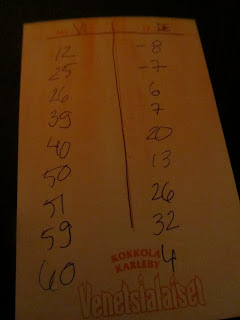 VI DE
12 -8
25 -7
26 6
39 7
40 20
50 13
51 26
59 32
60 4
KOKKOLA
KARLEBY
Venetsialaiset